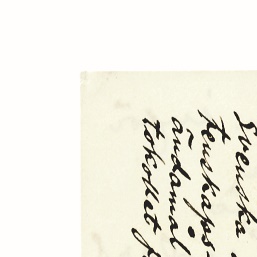 Svenska
tenskaps-
ändamål
tokopiat f